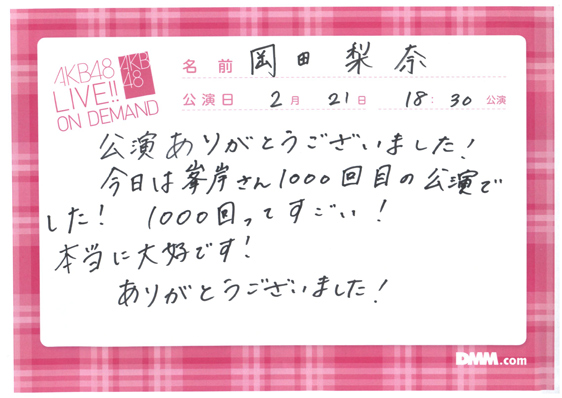 AKB48
LIVE!!
ON DEMAND
AKB
48
名前 岡田梨奈
公演日 2月 21日 18:30公演
公演ありがとうございました!
今日は峯岸さん1000回目の公演で
した! 1000回ってすごい!
本当に大好です!
ありがとうございました!
DMM.com